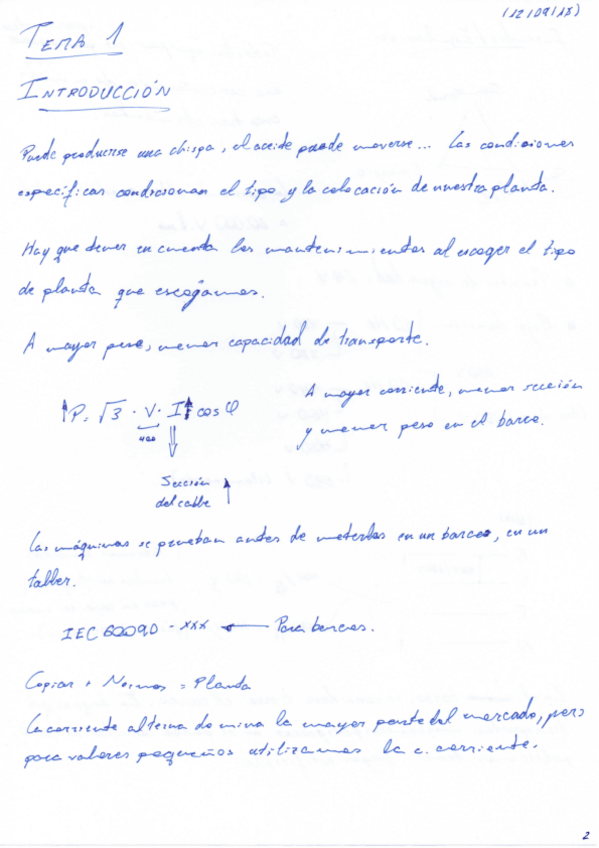 (12/09/1X)
TEMA 1
INTRODUCCIÓN
Puede producirse una chispa, el aceite puede moverse... Las condiciones
específicas condicionan el tipo y la colocación de nuestra planta.
Hay que tener en cuenta los mantenimientos al escoger el tipo
de planta que escojamos.
A mayor peso, menor capacidad de transporte.
↑P = √3 · V · I↑ cos φ
400
A mayor corriente, menor sección
y menor peso en el barco.
Sección
del cable ↑
Las máquinas se prueban antes de meterlas en un barco, en un
taller.
IEC 60090 - XXX ← Para barcos.
Copiar + Normas = Planta
La corriente alterna domina la mayor parte del mercado, pero
para valores pequeños utilizamos la c. corriente.
2